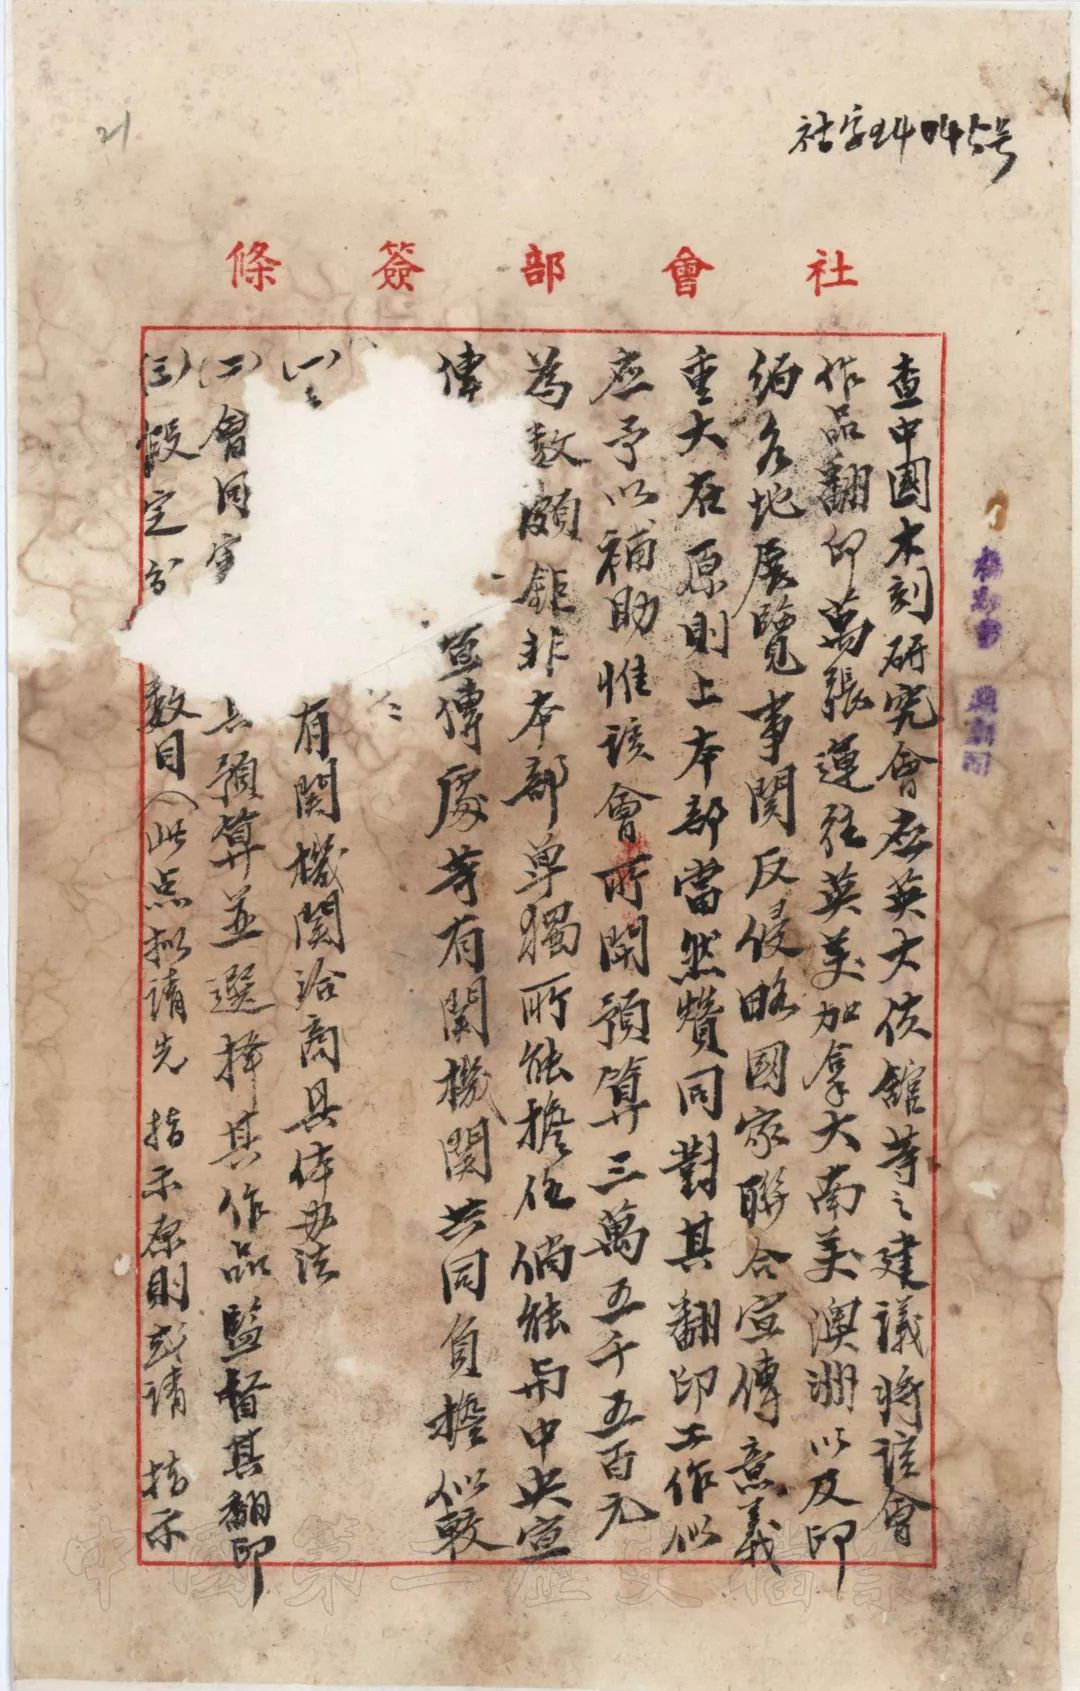 21
社字第4045号
社會部簽條
查中國木刻研究會應英大使館等之建議將該會
作品翻印萬張運往英美加拿大南美澳洲以及印
緬各地展覽事関反侵略國家聯合宣傳意義
重大在原則上本部當然贊同對其翻印工作似
應予以補助惟該會所開預算三萬五千五百元
為数頗鉅非本部单獨所能擔任倘能与中央宣
傳
宣傳處等有関機関共同負擔似較
(一)
有関機関洽商具体办法
(二)會同审
其預算並選择其作品監督其翻印
(三)假定分
数目(此点拟請先 指示原則或請 指示
中國第二歷史檔案